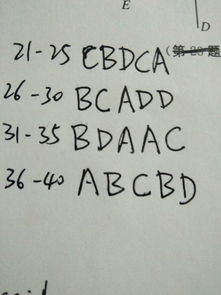 E
D
(第28题
21-25 CBDCA
26-30 BCADD
31-35 BDAAC
36-40 ABCBD